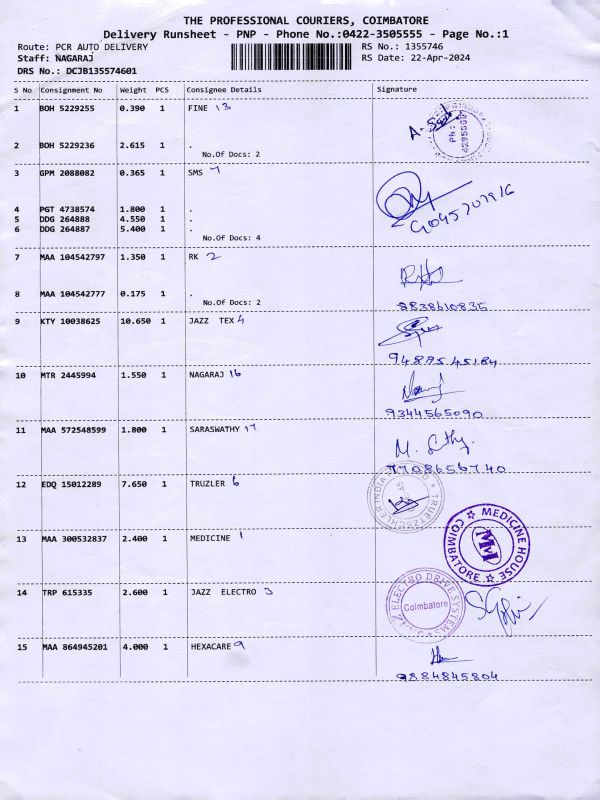 THE PROFESSIONAL COURIERS, COIMBATORE
Delivery Runsheet - PNP - Phone No.:0422-3505555 - Page No.:1
Route: PCR AUTO DELIVERY RS No.: 1355746
Staff: NAGARAJ RS Date: 22-Apr-2024
DRS No.: DCJB135574601
S No Consignment No Weight PCS Consignee Details Signature
1 BOH 5229255 0.390 1 FINE 13
2 BOH 5229236 2.615 1 .
No.Of Docs: 2
3 GPM 2088082 0.365 1 SMS 7
4 PGT 4738574 1.800 1 .
5 DDG 264888 4.550 1 .
6 DDG 264887 5.400 1 .
No.Of Docs: 4
7 MAA 104542797 1.350 1 RK 2
8 MAA 104542777 0.175 1 .
No.Of Docs: 2
8838610835
9 KTY 10038625 10.650 1 JAZZ TEX 4
9488545184
10 MTR 2445994 1.550 1 NAGARAJ 16
9344565090
11 MAA 572548599 1.800 1 SARASWATHY 17
M. Sathy.
7708656740
12 EDQ 15012289 7.650 1 TRUZLER 6
13 MAA 300532837 2.400 1 MEDICINE 1
MEDICINE HOUSE
COIMBATORE
14 TRP 615335 2.600 1 JAZZ ELECTRO 3
ELECTRO DRIVE SYSTEMS
Coimbatore
15 MAA 864945201 4.000 1 HEXACARE 9
9884845804